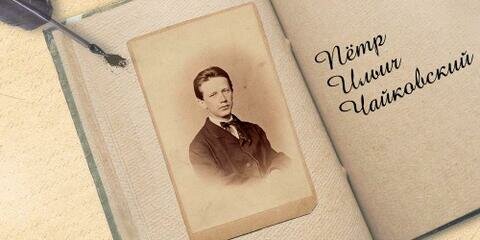 Пётр
Ильич
Чайковский